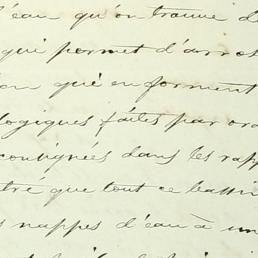 l'eau qu'on trouve d
qui permet d'arros
on qui en forment
logiques faites par ord
consignées dans les rapp
tré que tout ce bassin
s nappes d'eau à un